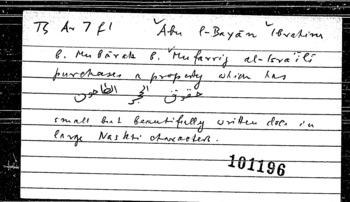 TS Ar 7 f1 ʾAbu l-Bayān ʾIbrahim
b. Mubārak b. ʾMufarrij al-Isrāʾīlī
purchases a property which has
حقوق الحجر الطاحون
small but beautifully written doc. in
large Naskhi characters.
101196